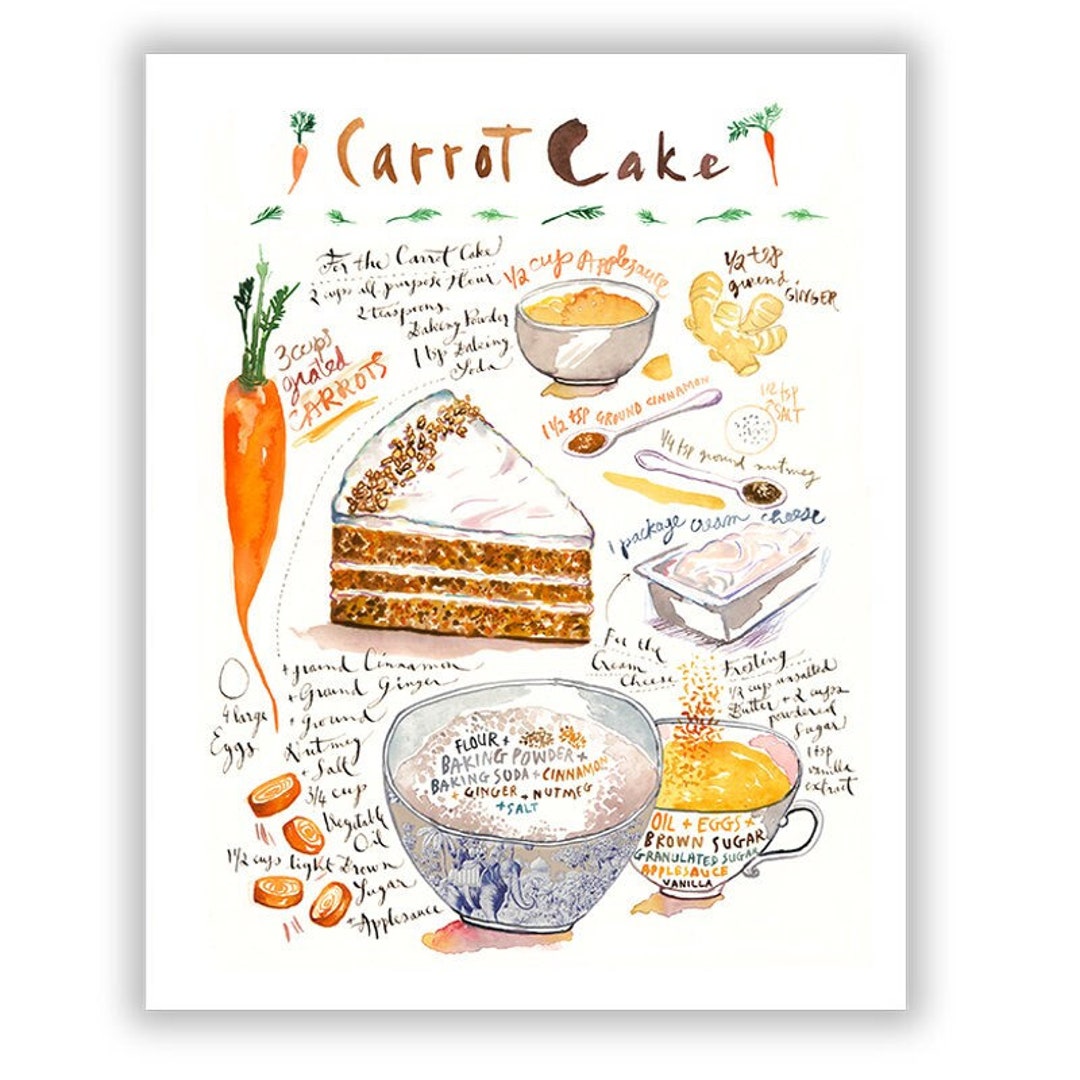 Carrot Cake
For the Carrot Cake
2 cups all-purpose flour
2 teaspoons
Baking Powder
1 tsp Baking
Soda
1/2 cup Applesauce
1/2 tsp
ground
GINGER
3 cups
grated
CARROTS
1 1/2 tsp GROUND CINNAMON
1/2 tsp
SALT
1/4 tsp ground nutmeg
1 package cream cheese
For the
Cream
Cheese
Frosting
1/2 cup unsalted
Butter + 2 cups
powdered
Sugar
1 tsp
vanilla
extract
+ ground Cinnamon
+ Ground Ginger
+ Ground
Nutmeg
+ Salt
4 large
Eggs
3/4 cup
Vegetable
Oil
1 1/2 cups light Brown
Sugar
+ Applesauce
FLOUR +
BAKING POWDER +
BAKING SODA + CINNAMON
+ GINGER + NUTMEG
+ SALT
OIL + EGGS +
BROWN SUGAR
GRANULATED SUGAR
APPLESAUCE
VANILLA